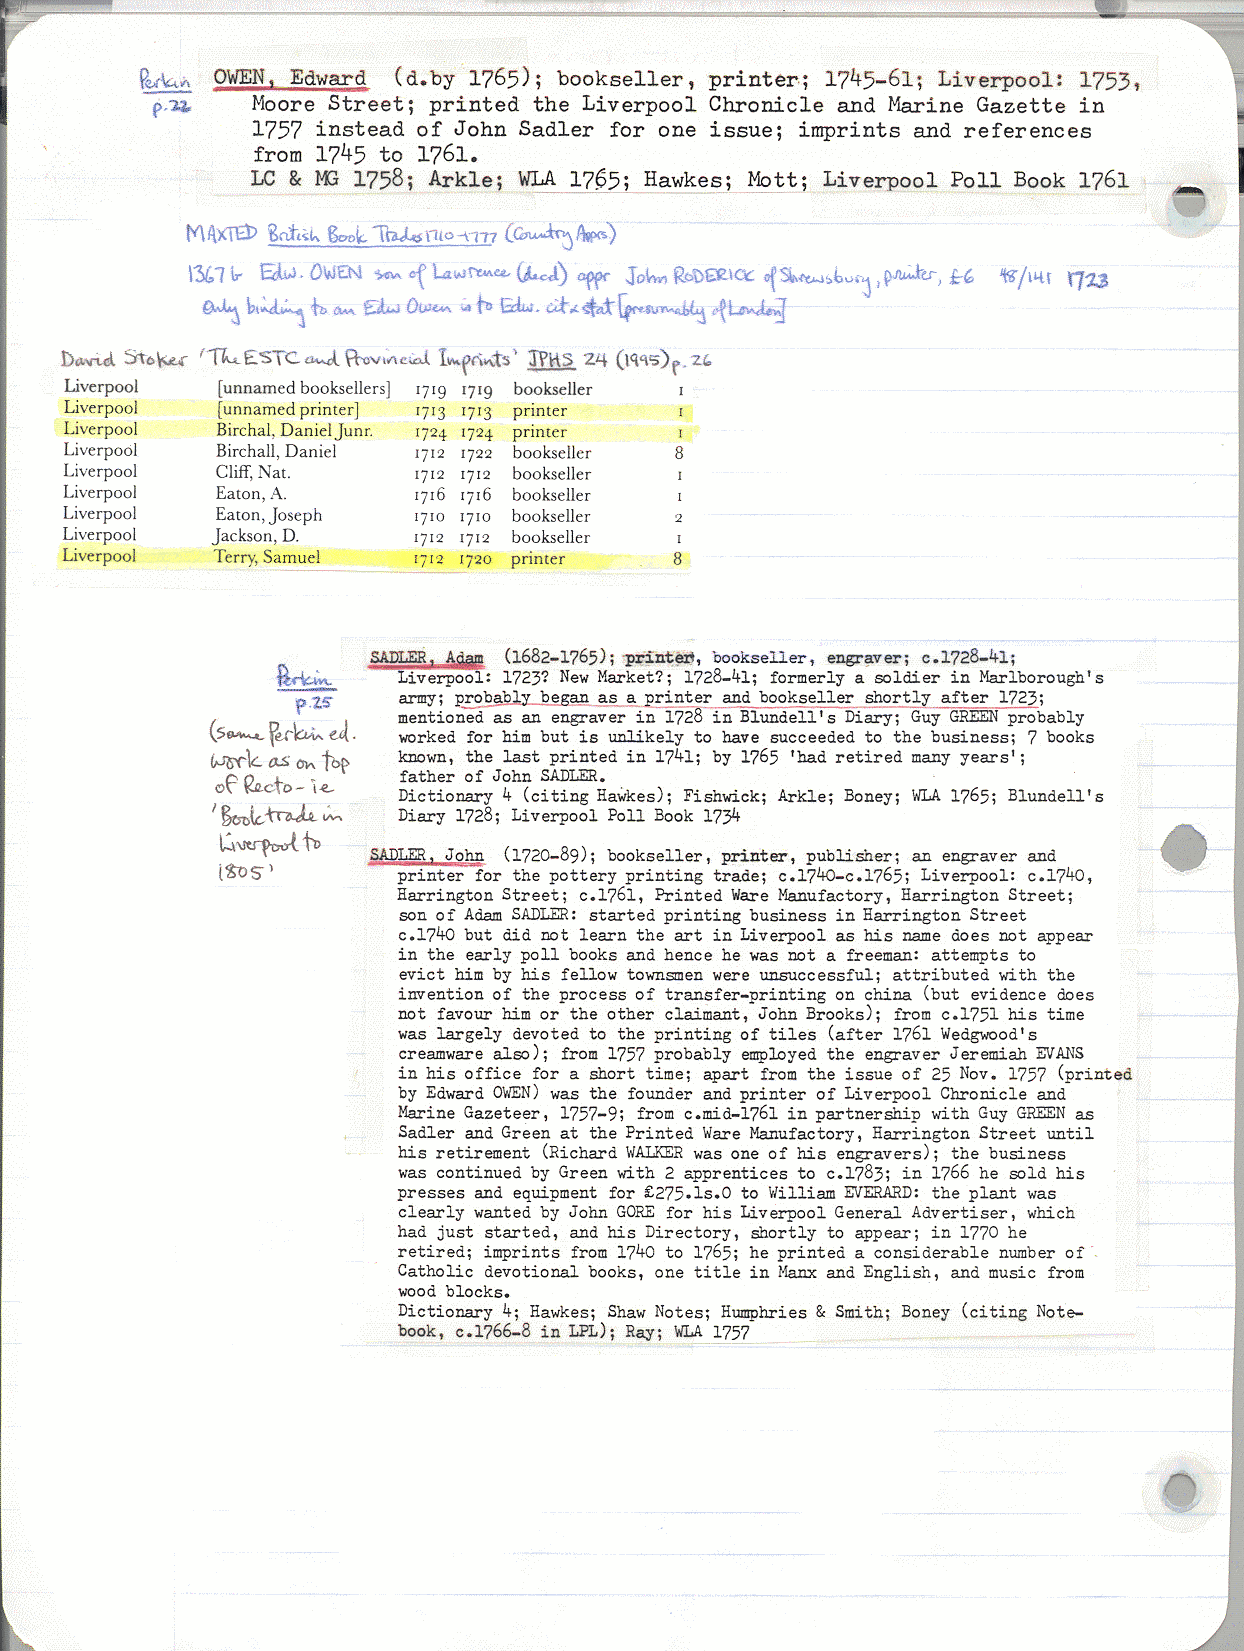 Perkin
p.22
OWEN, Edward (d.by 1765); bookseller, printer; 1745-61; Liverpool: 1753,
Moore Street; printed the Liverpool Chronicle and Marine Gazette in
1757 instead of John Sadler for one issue; imprints and references
from 1745 to 1761.
LC & MG 1758; Arkle; WLA 1765; Hawkes; Mott; Liverpool Poll Book 1761
MAXTED British Book Trades 1710-1777 (Country Apprs)
1367 b Edw. OWEN son of Lawrence (decd) appr John RODERICK of Shrewsbury, printer, £6 48/141 1723
Only binding to an Edw Owen is to Edw. cit & stat [presumably of London]
David Stoker 'The ESTC and Provincial Imprints' JPHS 24 (1995) p. 26
Liverpool [unnamed booksellers] 1719 1719 bookseller 1
Liverpool [unnamed printer] 1713 1713 printer 1
Liverpool Birchal, Daniel Junr. 1724 1724 printer 1
Liverpool Birchall, Daniel 1712 1722 bookseller 8
Liverpool Cliff, Nat. 1712 1712 bookseller 1
Liverpool Eaton, A. 1716 1716 bookseller 1
Liverpool Eaton, Joseph 1710 1710 bookseller 2
Liverpool Jackson, D. 1712 1712 bookseller 1
Liverpool Terry, Samuel 1712 1720 printer 8
Perkin
p.25
(same Perkin ed.
work as on top
of Recto - ie
'Book trade in
Liverpool to
1805'
SADLER, Adam (1682-1765); printer, bookseller, engraver; c.1728-41;
Liverpool: 1723? New Market?; 1728-41; formerly a soldier in Marlborough's
army; probably began as a printer and bookseller shortly after 1723;
mentioned as an engraver in 1728 in Blundell's Diary; Guy GREEN probably
worked for him but is unlikely to have succeeded to the business; 7 books
known, the last printed in 1741; by 1765 'had retired many years';
father of John SADLER.
Dictionary 4 (citing Hawkes); Fishwick; Arkle; Boney; WLA 1765; Blundell's
Diary 1728; Liverpool Poll Book 1734
SADLER, John (1720-89); bookseller, printer, publisher; an engraver and
printer for the pottery printing trade; c.1740-c.1765; Liverpool: c.1740,
Harrington Street; c.1761, Printed Ware Manufactory, Harrington Street;
son of Adam SADLER: started printing business in Harrington Street
c.1740 but did not learn the art in Liverpool as his name does not appear
in the early poll books and hence he was not a freeman: attempts to
evict him by his fellow townsmen were unsuccessful; attributed with the
invention of the process of transfer-printing on china (but evidence does
not favour him or the other claimant, John Brooks); from c.1751 his time
was largely devoted to the printing of tiles (after 1761 Wedgwood's
creamware also); from 1757 probably employed the engraver Jeremiah EVANS
in his office for a short time; apart from the issue of 25 Nov. 1757 (printed
by Edward OWEN) was the founder and printer of Liverpool Chronicle and
Marine Gazeteer, 1757-9; from c.mid-1761 in partnership with Guy GREEN as
Sadler and Green at the Printed Ware Manufactory, Harrington Street until
his retirement (Richard WALKER was one of his engravers); the business
was continued by Green with 2 apprentices to c.1783; in 1766 he sold his
presses and equipment for £275.1s.0 to William EVERARD: the plant was
clearly wanted by John GORE for his Liverpool General Advertiser, which
had just started, and his Directory, shortly to appear; in 1770 he
retired; imprints from 1740 to 1765; he printed a considerable number of
Catholic devotional books, one title in Manx and English, and music from
wood blocks.
Dictionary 4; Hawkes; Shaw Notes; Humphries & Smith; Boney (citing Note-
book, c.1766-8 in LPL); Ray; WLA 1757